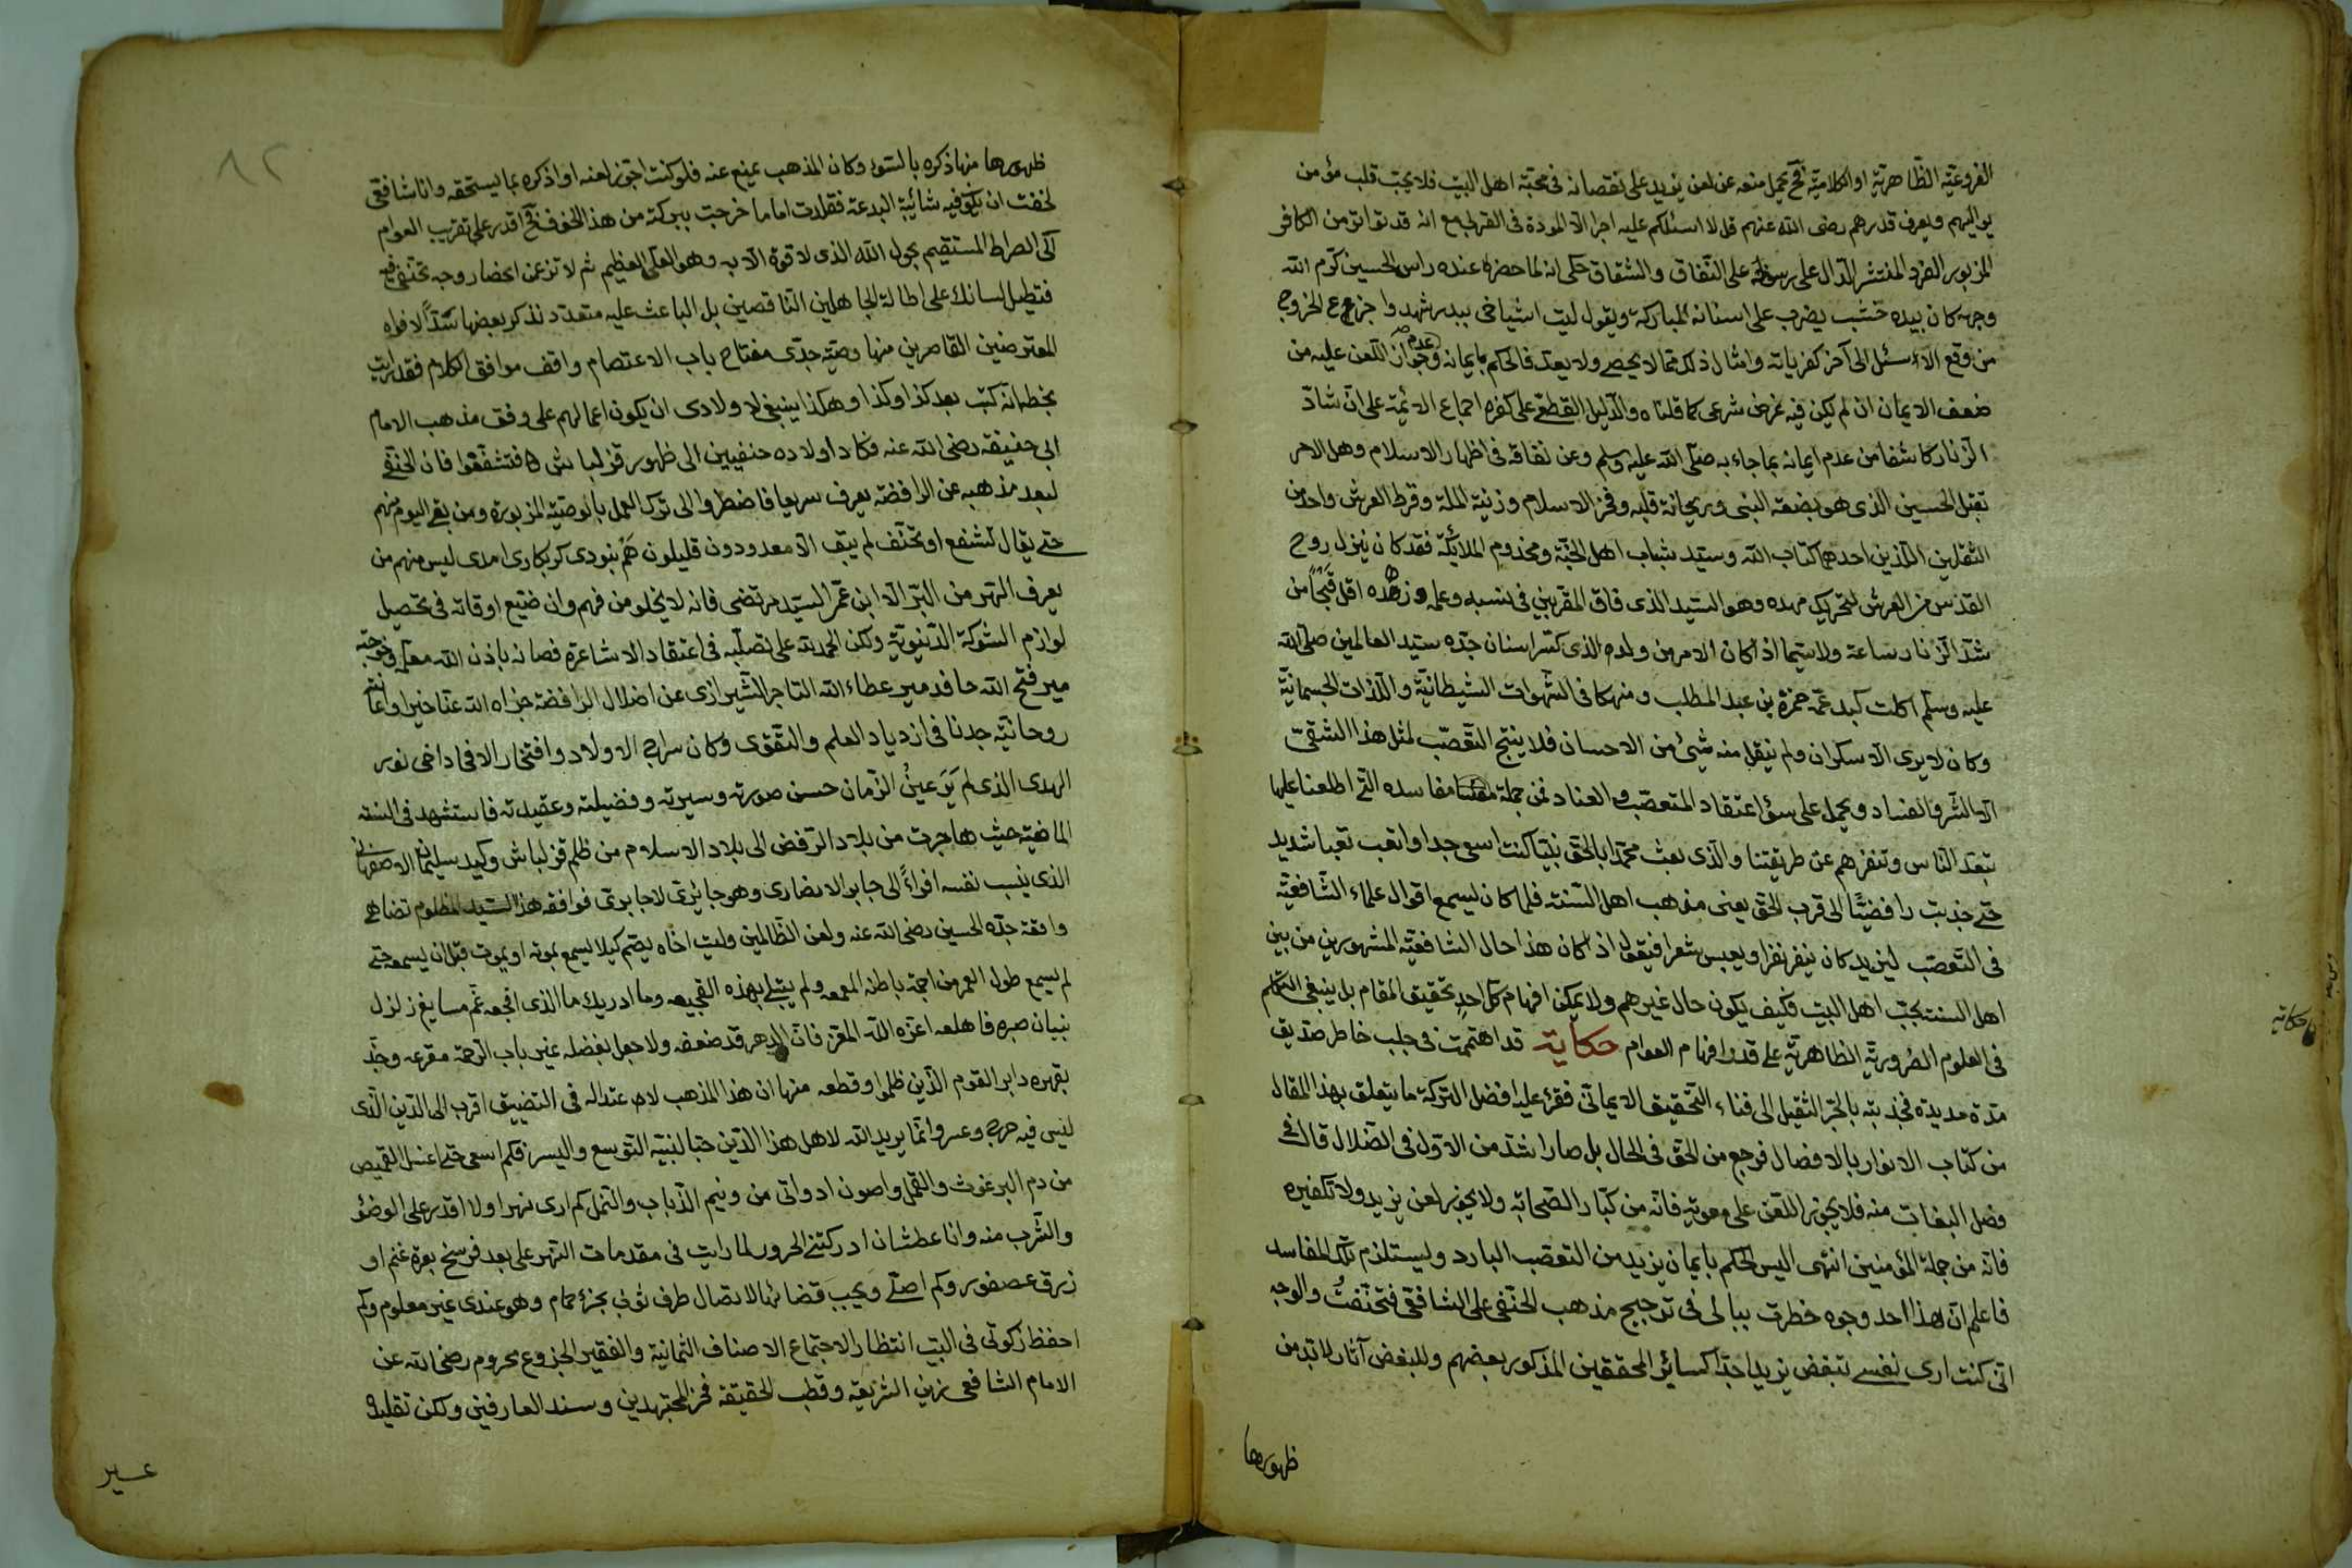 الفروعيّة الظّاهريّة او الكلاميّة فح يحمل منعه عن لعن يزيد على نقصانه في محبّة اهل البيت فلا يجب قلب مؤمن
يواليهم ويعرف قدرهم رضى الله عنهم قل لا اسئلكم عليه اجرا الّا المودة في القربى مع انه قد تواتر من الكافر
المزبور الفرد المنتشر الدّال على رسوخه على النّفاق والشقاق حكى انه لما حضره عنده راس الحسين كرّم الله
وجهه كان بيده خشب يضرب على اسنانه المباركة ويقول ليت اشياخى ببدر شهدوا جزع الخزرج
من وقع الاسل الى آخر كفرياته وامثال ذلك ممّا لا يحصى ولا يعد فالحكم بايمانه وعدم جواز اللّعن عليه من
ضعف الايمان ان لم يكن فيه غرض شرعى كما قلناه والدّليل القطعى على كفره اجماع الائمّة على انّ شادّ
الزّنار كاشفا من عدم ايمانه بما جاء به صلّى الله عليه وسلم وعن نفاقه في اظهار الاسلام وهل الامر
بقتل الحسين الّذى هو بضعة النبى وريحانة قلبه وفخر الاسلام وزينة الملة وقرط العرش واحد من
الثقلين الّلذين احدهما كتاب الله وسيّد شباب اهل الجنّة ومخدوم الملائكة فقد كان ينزل روح
القدس من العرش لتحريك مهده وهو السيّد الذى فاق المقربين في نسبه وعلمه وزهده اقل قبحا من
شدّ الزّنار ساعة ولا سيّما اذا كان الامر من ولد الذى كسر اسنان جدّه سيّد العالمين صلى الله
عليه وسلّم اكلت كبد عمّه حمزة بن عبد المطلب ومنهمكا في الشّهوات الشيطانيّة واللّذات الجسمانيّة
وكان لا يرى الّا سكران ولم ينقل منه شئ من الاحسان فلا ينتج التّعصّب لمثل هذا الشّقىّ
الّا الشّر والفساد ويحمل على سوء اعتقاد المتعصّب والعناد فمن جملة مفاسده التّى اطلعنا عليها
تبعّد النّاس وتنفرهم عن طريقتنا والّذى بعث محمّدا بالحقّ نبيّا كنت اسعى جدا واتعب تعبا شديد
حتّى جذبت رافضيّا الى قرب الحقّ يعنى مذهب اهل السّنة فلما كان ليسمع اقوال علماء الشّافعيّة
في التّعصّب ليزيد كان ينفر نفرا ويعبس شعرا فيقول اذا كان هذا حال الشافعيّة المشهورين من بين
اهل السنة بحبّ اهل البيت فكيف يكون حال غيرهم ولا يمكن افهام كلّ احد تحقيق المقام بل ينبغى التكلم
في العلوم الضّروريّة الظاهريّة على قدر افهام العوام حكاية قد اهتممت في جلب خاطر صديق
مدّة مديدة فجذبته بالجرّ الثقيل الى فناء التّحقيق الايمانى فقرء عليه افضل التركة ما يتعلق بهذا المقال
من كتاب الانوار بالافضال فرجع من الحقّ في الحال بل صار اشدّ من الاوّل في الضّلال قال في
فصل البغات منه فلا يجوز اللّعن على معوية فانّه من كبار الصّحابة ولا يجوز لعن يزيد ولا تكفيره
فانّه من جملة المؤمنين انتهى اليس الحكم بايمان يزيد من التعصّب البارد وليستلزم تلك المفاسد
فاعلم انّ هذا احد وجوه خطرت ببالى في ترجيح مذهب الحنفى على الشافعى فتحنّفتُ والوجه
انّى كنت ارى نفسى تبغض يزيدا جدّا كسائر المحققين المذكور بعضهم وللبغض آثار لا بد من
ظهورها
حكاية
ظهورها منها ذكره بالسّوء وكان المذهب يمنع عنه فلو كنت اجوّز لعنه او اذكره بما يستحقه وانا شافعى
لخفت ان يكون فيه شائبة البدعة فقلدت اماما خرجت ببركته من هذا الخوف فح اقدر على تقريب العوام
الى الصراط المستقيم بحول الله الذى لا قوة الّا به وهو العلى العظيم ثم لا تزعمن انحصار وجه تحنّفى فيه
فتطيل لسانك على اطالة الجاهلين النّاقصين بل الباعث عليه متعدّد نذكر بعضها سدّا لافواه
المعترضين القاصرين منها وصيّة جدّى مفتاح باب الاعتصام واقف مواقف الكلام فقد رايت
بخطه انه كتب بعد كذا وكذا وهكذا ينبغى لاولادى ان يكون اعمالهم على وفق مذهب الامام
ابى حنيفه رضى الله عنه فكان اولاده حنفيين الى ظهور قزلباش فتشفّعوا فان الحنفى
لبعد مذهبه عن الرافضة يعرف سريعا فاضطروا الى ترك العمل بالوصيّة المزبورة ومن بقى اليوم منهم
حتّى يقال تشفع او تحنّف لم يبق الّا معدودون قليلون هم نبودى كر بكارى امدى ليس منهم من
يعرف الهرّ من البرّ الّا ابن عمّ السيّد مرتضى فانه لا يخلو من فهم وان ضيّع اوقاته في تحصيل
لوازم الشوكة الدّنيويّة ولكن الحمد لله على تصلّبه في اعتقاد الاشاعرة فصانه باذن الله معلمه وخوجته
مير فتح الله حافد مير عطاء الله التاجر الشّيرازى عن اضلال الرافضة جزاه الله عنّا خيرا واعانته
روحانيّة جدنا في ازدياد العلم والتّقوى وكان سراج الاولاد وافتخار الافاد اخى نور
الهدى الذى لم يَرَ عينُ الزّمان حسن صورته وسيرته وفضيلته وعقيدته فاستشهد في السنة
الماضية حيث هاجرت من بلاد الرّفض الى بلاد الاسلام من ظلم قزلباش وكيد سليمان الاصفهانى
الذى ينسب نفسه افراءً الى جابر الانصارى وهو جائرى لا جابرى فوافقه هذا السيد المظلوم تضاهى
واقعة جدّه الحسين رضى الله عنه ولعن الظّالمين وليت اخاه يصم كيلا يسمع بموته او يموت قبل ان يسمعه حتّى
لم يسمع طول العمر من احبة باطنه المعمعه ولم يبتلى بهذه الفجيعه وما ادريك ما الذى افجعه غم مسايغ زلزل
بنيان صبره فاهلعه اعزه الله المقرّ فانّ الدهر قد ضعفه ولا جعل بفضله غير باب الرّحمة مقرعه وجدّ
بقهره دابر القوم الذين ظلموا وقطعه منها ان هذا المذهب لاعتداله في التضييق اقرب الى الدّين الّذى
ليس فيه حرج وعسر وانّما يريد الله لاهل هذا الدّين حبّا لنبيّه التّوسع واليسر فكم اسعى حتّى اغسل القميص
من دم البرغوث والقمل واصون ادواتى من ونيم الذّباب والنّمل كم ارى نهرا ولا اقدر على الوضوء
والشّرب منه وانا عطشان ادركتنى الحرور لما رايت في مقدمات النّهر على بعد فرسخ بعرة غنم او
زرق عصفور وكم اصلّى ويجب قضائها لاتصال طرف ثوبى بجزء حمام وهو عندى غير معلوم وكم
احفظ زكوتى في البيت انتظارا لاجتماع الاصناف الثمانية والفقير الجزوع محروم رضى الله عن
الامام الشافعى زين الشريعة وقطب الحقيقة فخر المجتهدين وسند العارفين ولكن تقليده
عسير
٨٢